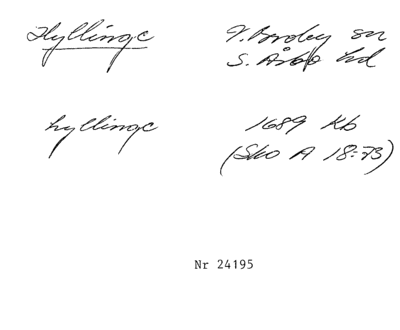 Hyllinge
V. Broby sn
S. Åsbo hd
hyllinge
1689 Kb
(Sko A 18:73)
Nr 24195